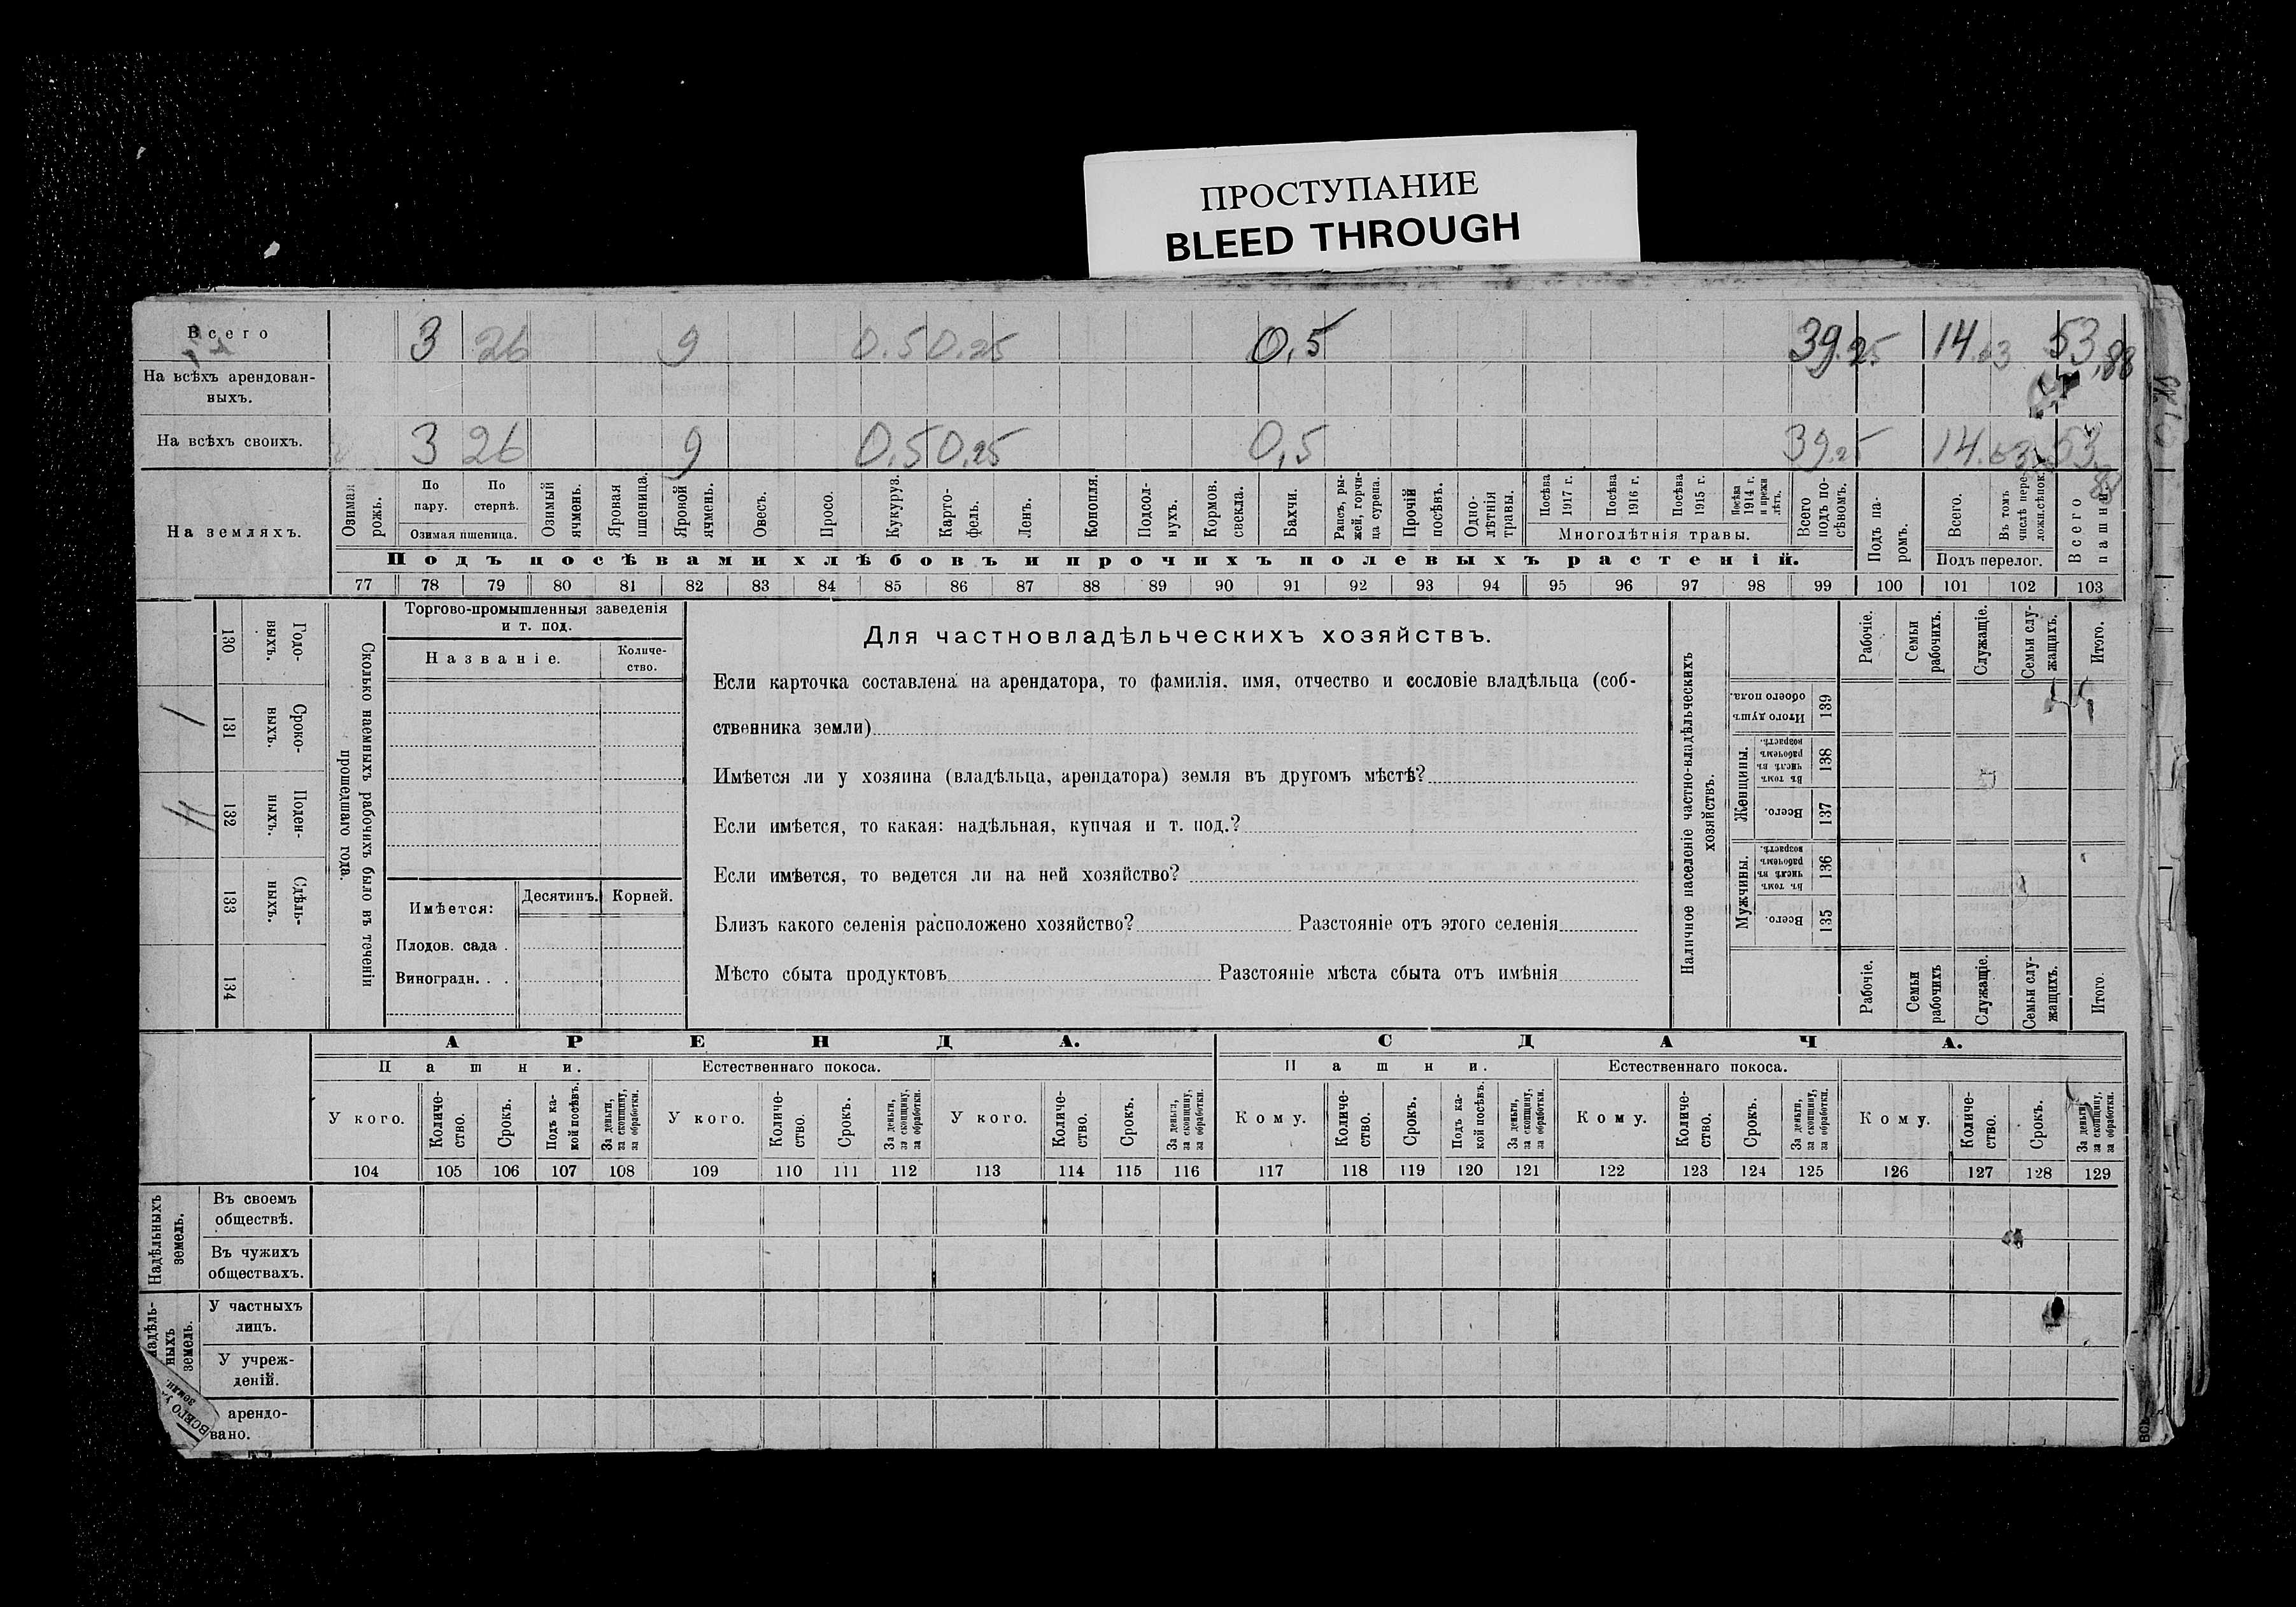 ПРОСТУПАНИЕ
BLEED THROUGH
Всего 3 26 9 0.5 0.25 0,5 39.25 14.63 53,88
На всѣхъ арендован-
ныхъ.
На всѣхъ своихъ. 3 26 9 0.5 0.25 0,5 39.25 14.63 53,88
На земляхъ.
Озимая рожь.
По пару.
По стернѣ.
Озимая пшеница.
Озимый ячмень.
Яровая пшеница.
Яровой ячмень.
Овесъ.
Просо.
Кукуруз.
Карто-
фель.
Ленъ.
Конопля.
Подсол-
нухъ.
Кормов. свекла.
Бахчи.
Рапсъ, ры-
жей, горчи-
ца сурепа.
Прочій посѣвъ.
Одно-
лѣтнія травы.
Посѣва 1917 г.
Посѣва 1916 г.
Посѣва 1915 г.
Посѣва 1914 г. и прежн лѣтъ.
Многолѣтнія травы.
Всего подъ по-
сѣвомъ.
Подъ па-
ромъ.
Всего.
Въ томъ числѣ пере-
ложн.сѣнок.
Подъ перелог.
Всего пашни.
Подъ посѣвами хлѣбовъ и прочихъ полевыхъ растеній.
77 78 79 80 81 82 83 84 85 86 87 88 89 90 91 92 93 94 95 96 97 98 99 100 101 102 103
130 Годо-
выхъ.
131 Сроко-
выхъ.
132 Поден-
ныхъ.
133 Сдѣль-
ныхъ.
134
Сколько наемныхъ рабочихъ было въ теченіи
прошедшаго года.
Торгово-промышленныя заведенія
и т. под.
Названіе.
Количе-
ство.
Имѣется:
Десятинъ. Корней.
Плодов. сада .
Виноградн. . .
Для частновладѣльческихъ хозяйствъ.
Если карточка составлена на арендатора, то фамилія, имя, отчество и сословіе владѣльца (соб-
ственника земли)
Имѣется ли у хозяина (владѣльца, арендатора) земля въ другомъ мѣстѣ?
Если имѣется, то какая: надѣльная, купчая и т. под.?
Если имѣется, то ведется ли на ней хозяйство?
Близъ какого селенія расположено хозяйство? Разстояніе отъ этого селенія
Мѣсто сбыта продуктовъ Разстояніе мѣста сбыта отъ имѣнія
Наличное населеніе частно-владѣльческихъ
хозяйствъ.
Рабочіе.
Семьи рабочихъ.
Служащіе.
Семьи слу-
жащихъ.
Итого.
Итого душъ обоего пола. 139
Женщины.
Въ томъ числѣ въ рабочемъ возрастѣ. 138
Всего. 137
Мужчины.
Въ томъ числѣ въ рабочемъ возрастѣ. 136
Всего. 135
Рабочіе.
Семьи рабочихъ
Служащіе.
Семьи слу-
жащихъ.
Итого
АРЕНДА. СДАЧА.
Пашни. Естественнаго покоса. Пашни. Естественнаго покоса.
У кого.
Количе-
ство.
Срокъ.
Подъ ка-
кой посѣвъ.
За деньги,
за скопщину,
за обработки.
У кого.
Количе-
ство.
Срокъ.
За деньги,
за скопщину,
за обработки.
У кого.
Количе-
ство.
Срокъ.
За деньги,
за скопщину,
за обработки.
Кому.
Количе-
ство.
Срокъ.
Подъ ка-
кой посѣвъ.
За деньги,
за скопщину,
за обработки.
Кому.
Количе-
ство.
Срокъ.
За деньги,
за скопщину,
за обработки.
Кому.
Количе-
ство.
Срокъ.
За деньги,
за скопщину,
за обработки.
104 105 106 107 108 109 110 111 112 113 114 115 116 117 118 119 120 121 122 123 124 125 126 127 128 129
Надѣльныхъ
земель.
Въ своемъ
обществѣ.
Въ чужихъ
обществахъ.
ныхъ
земель.
У частныхъ
лицъ.
У учреж-
деній.
арендо-
вано.